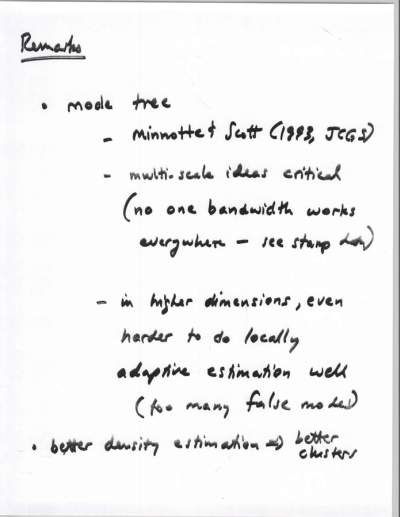 Remarks
• mode tree
- Minnotte & Scott (1993, JCGS)
- multi-scale ideas critical
(no one bandwidth works
everywhere - see stamp data)
- in higher dimensions, even
harder to do locally
adaptive estimation well
(too many false modes)
• better density estimation => better
clusters